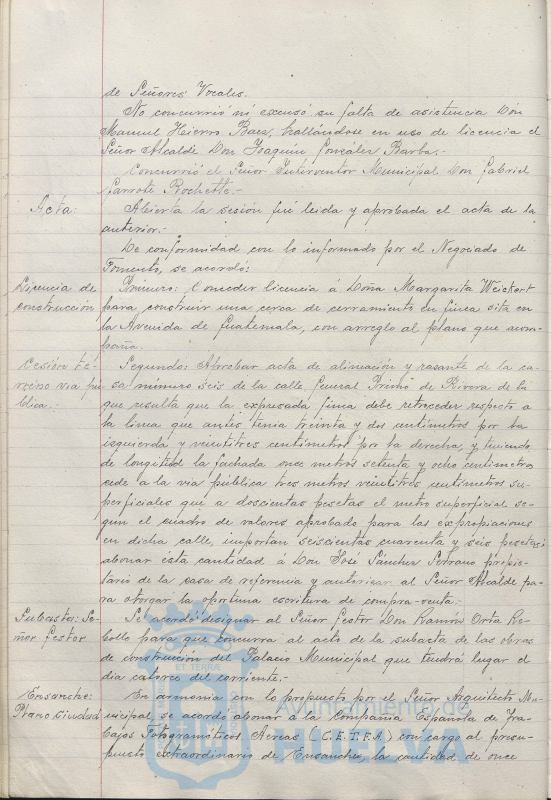 de Señores Vocales.
No concurrió ni excusó su falta de asistencia Don
Manuel Hierro Baez, hallándose en uso de licencia el
Señor Alcalde Don Joaquín González Barba.-
Concurrió el Señor Interventor Municipal Don Gabriel
Garrote Rochette.-
Acta: Abierta la sesión fué leida y aprobada el acta de la
anterior.-
De conformidad con lo informado por el Negociado de
Fomento, se acordó:
Licencia de Primero: Conceder licencia á Doña Margarita Weickert
construcción para construir una cerca de cerramiento en finca sita en
la Avenida de Guatemala, con arreglo al plano que acom-
paña.
Cesión te- Segundo: Aprobar acta de alineación y rasante de la ca-
rreno via pú sa número seis de la calle General Primo de Rivera de la
blica. que resulta que la expresada finca debe retroceder respecto a
la linea que antes tenia treinta y dos centimetros por la
izquierda y veintitres centimetros por la derecha, y teniendo
de longitud la fachada once metros setenta y ocho centimetros
cede a la via pública tres metros veintitres centimetros su-
perficiales que a doscientas pesetas el metro superficial se-
gun el cuadro de valores aprobado para las expropiaciones
en dicha calle, importan seiscientas cuarenta y seis pesetas;
abonar ésta cantidad á Don José Sánchez Serrano propie-
tario de la casa de referencia y autorizar al Señor Alcalde pa-
ra otorgar la oportuna escritura de compra-venta.-
Subasta: Se- Se acordó designar al Señor Gestor Don Ramón Orta Re-
ñor Gestor bollo para que concurra al acto de la subasta de las obras
de construcción del Palacio Municipal que tendrá lugar el
dia catorce del corriente.-
Ensanche: En armonia con lo propuesto por el Señor Arquitecto Mu-
Plano ciudad nicipal, se acordó abonar a la Compañia Española de Tra-
bajos Fotogramáticos Aereos (C.E.T.F.A.) con cargo al presu-
puesto extraordinario de Ensanche, la cantidad de once
ET TERRA
Ayuntamiento de
HUELVA